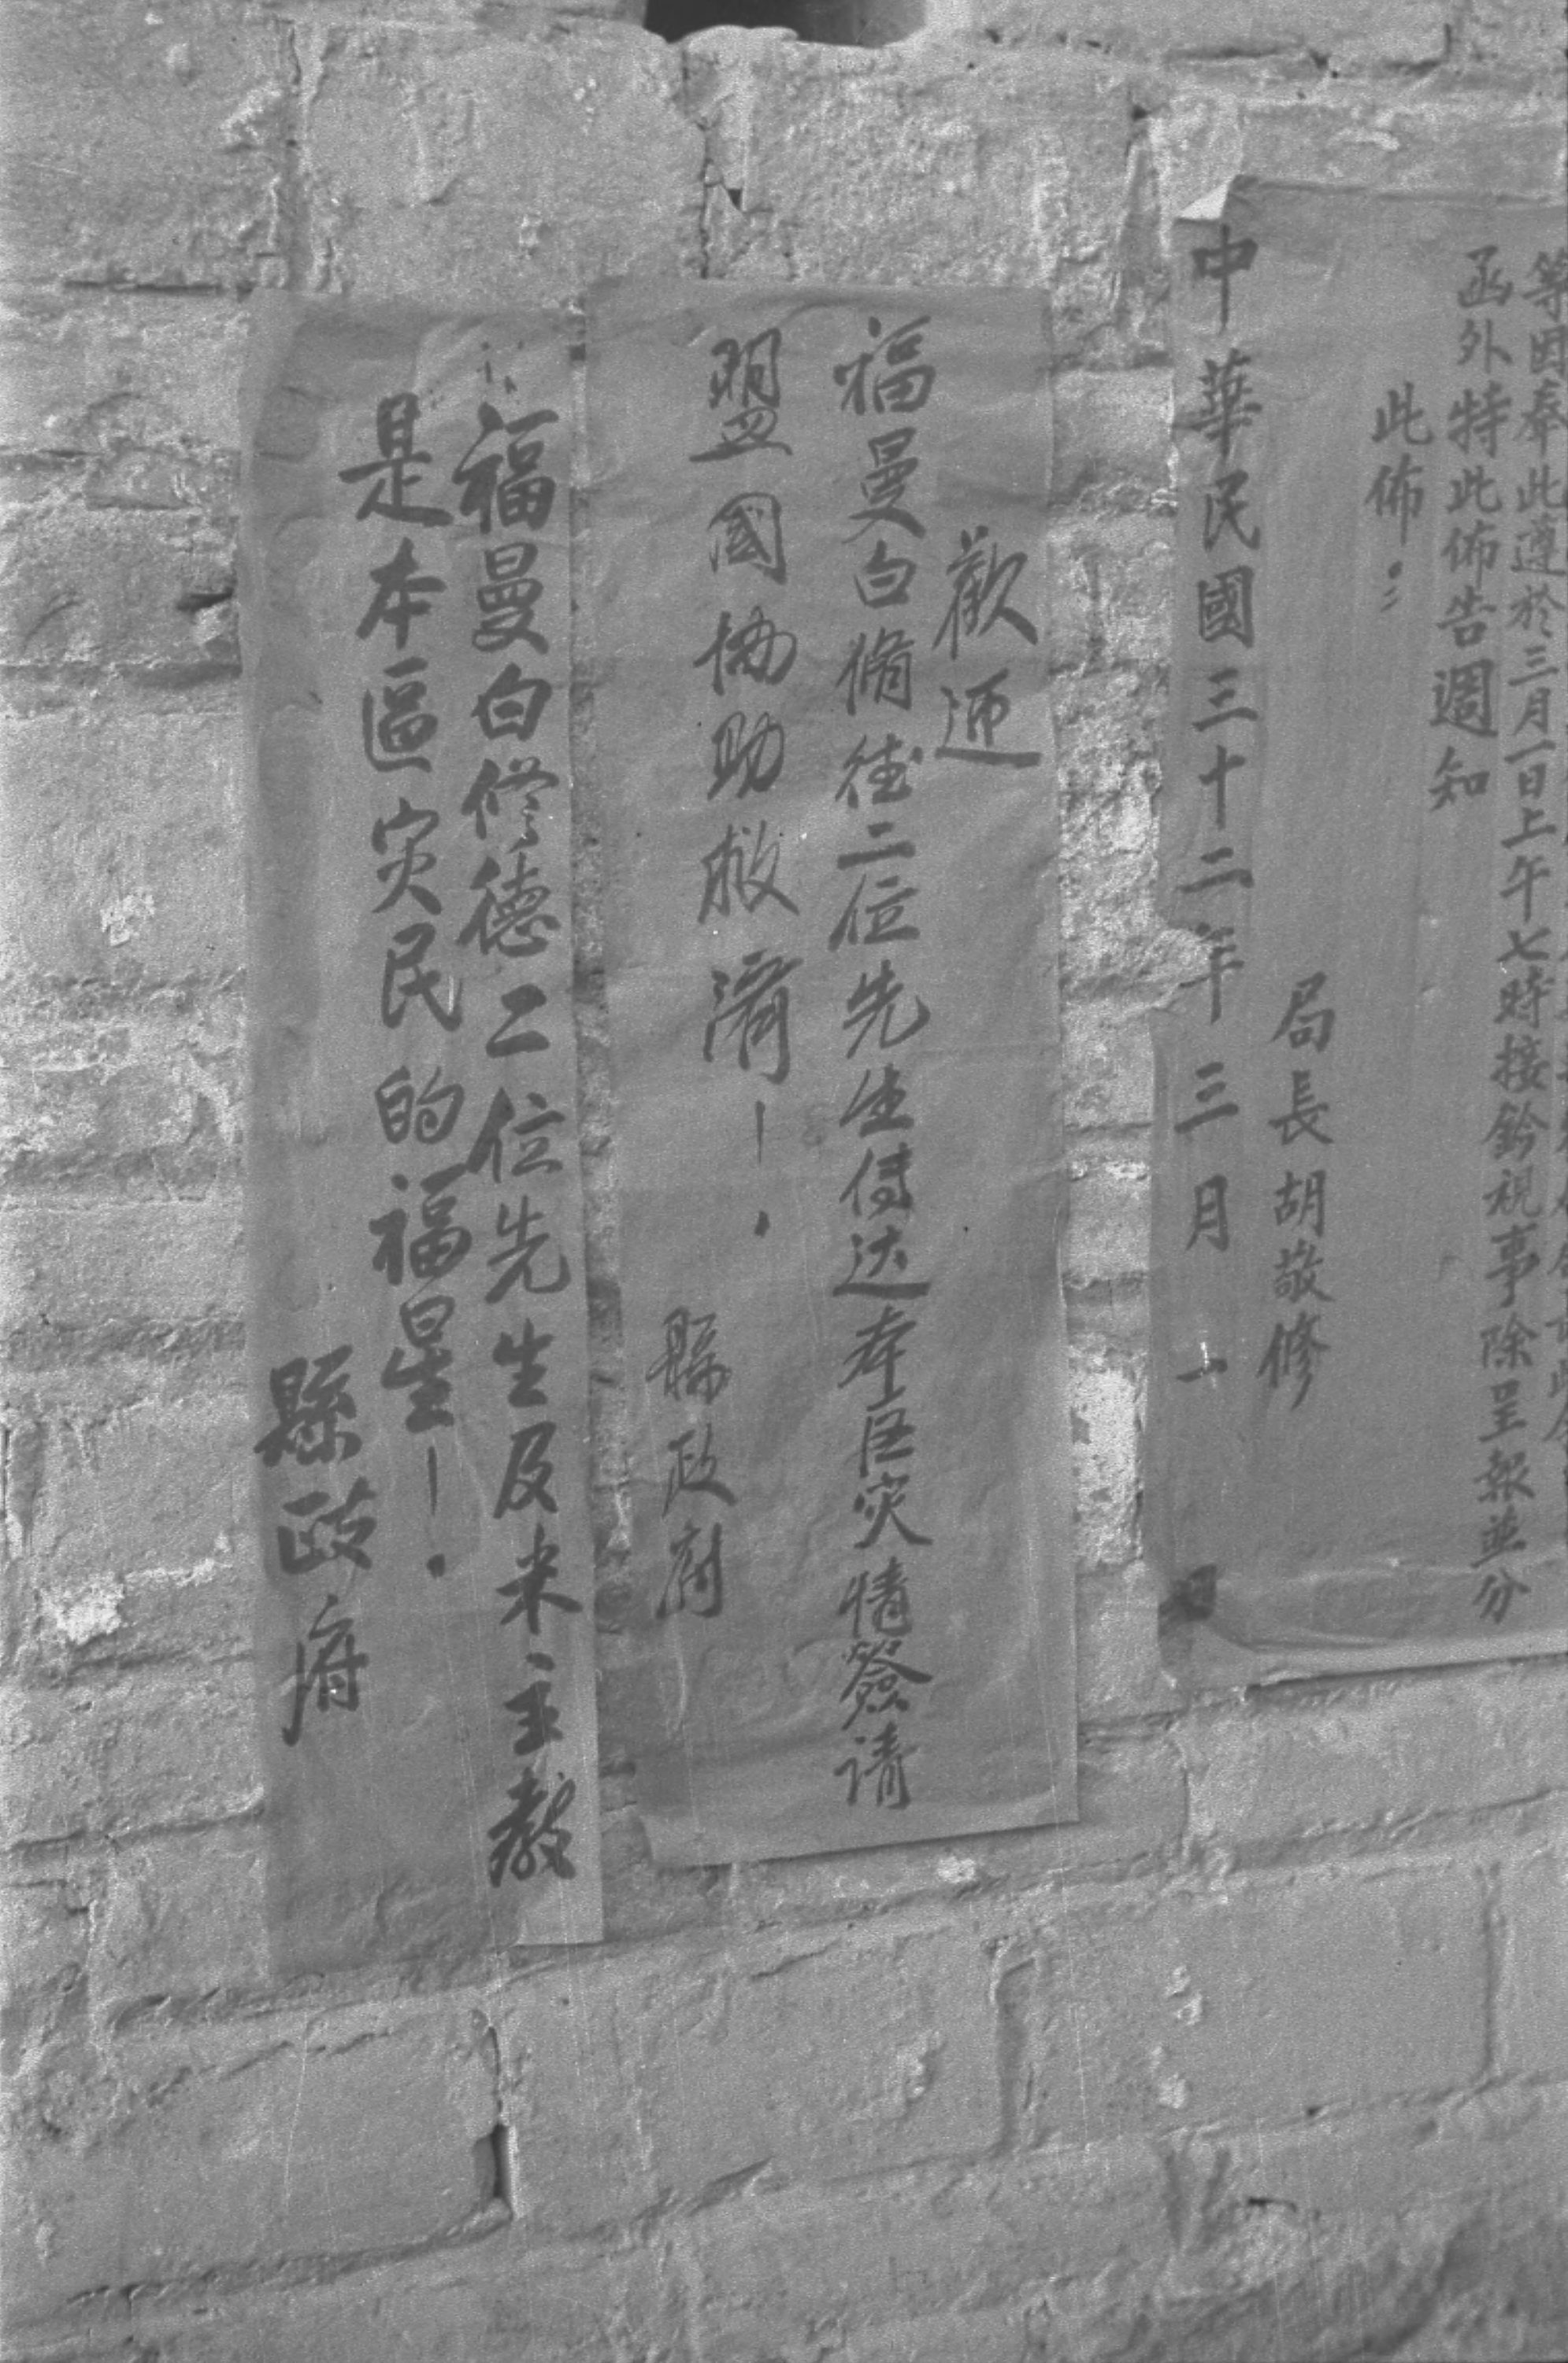 等因奉此遵於三月一日上午七時接鈐視事除呈報並分
函外特此佈告週知
此佈
局長胡敬修
中華民國三十二年三月一日
歡迎
福曼白脩德二位先生傳达本区灾情簽请
盟国协助救濟！
縣政府
福曼白修德二位先生及米主教
是本區灾民的福星！
縣政府